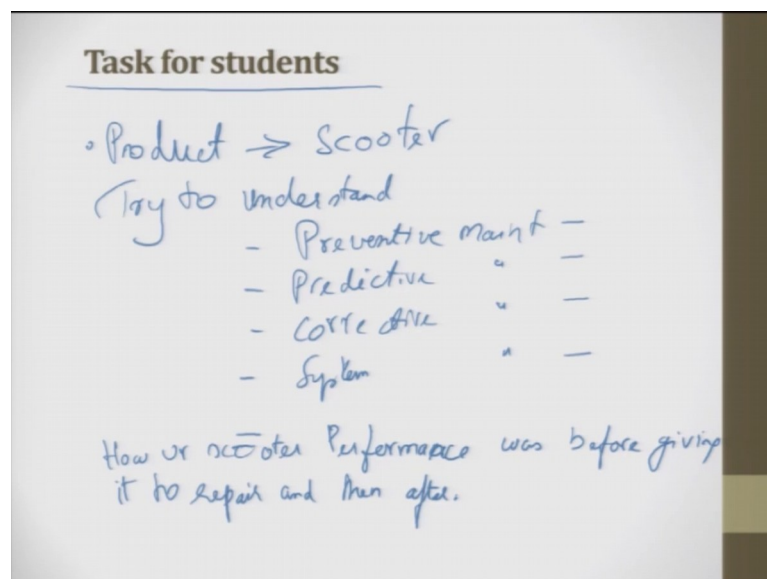 Task for students
• Product → Scooter
(Try to understand
- Preventive Maint -
- Predictive " -
- Corrective " -
- System " -
How ur scooter Performance was before giving
it to repair and then after.